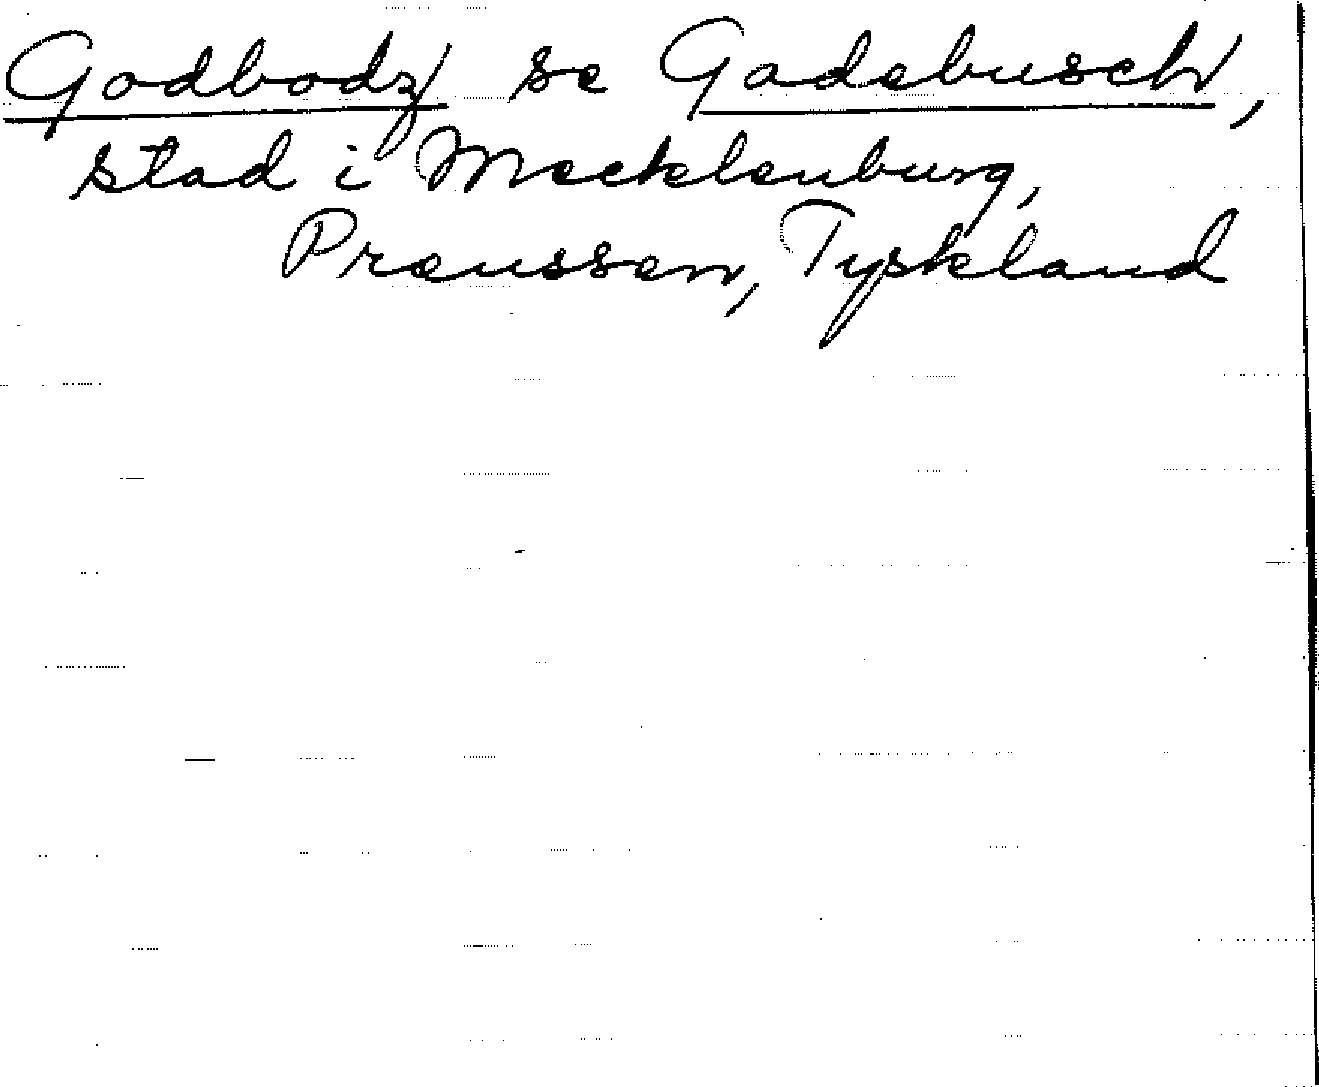 Godbodz se Gadebusch,
stad i Mecklenburg,
Preussen, Tyskland